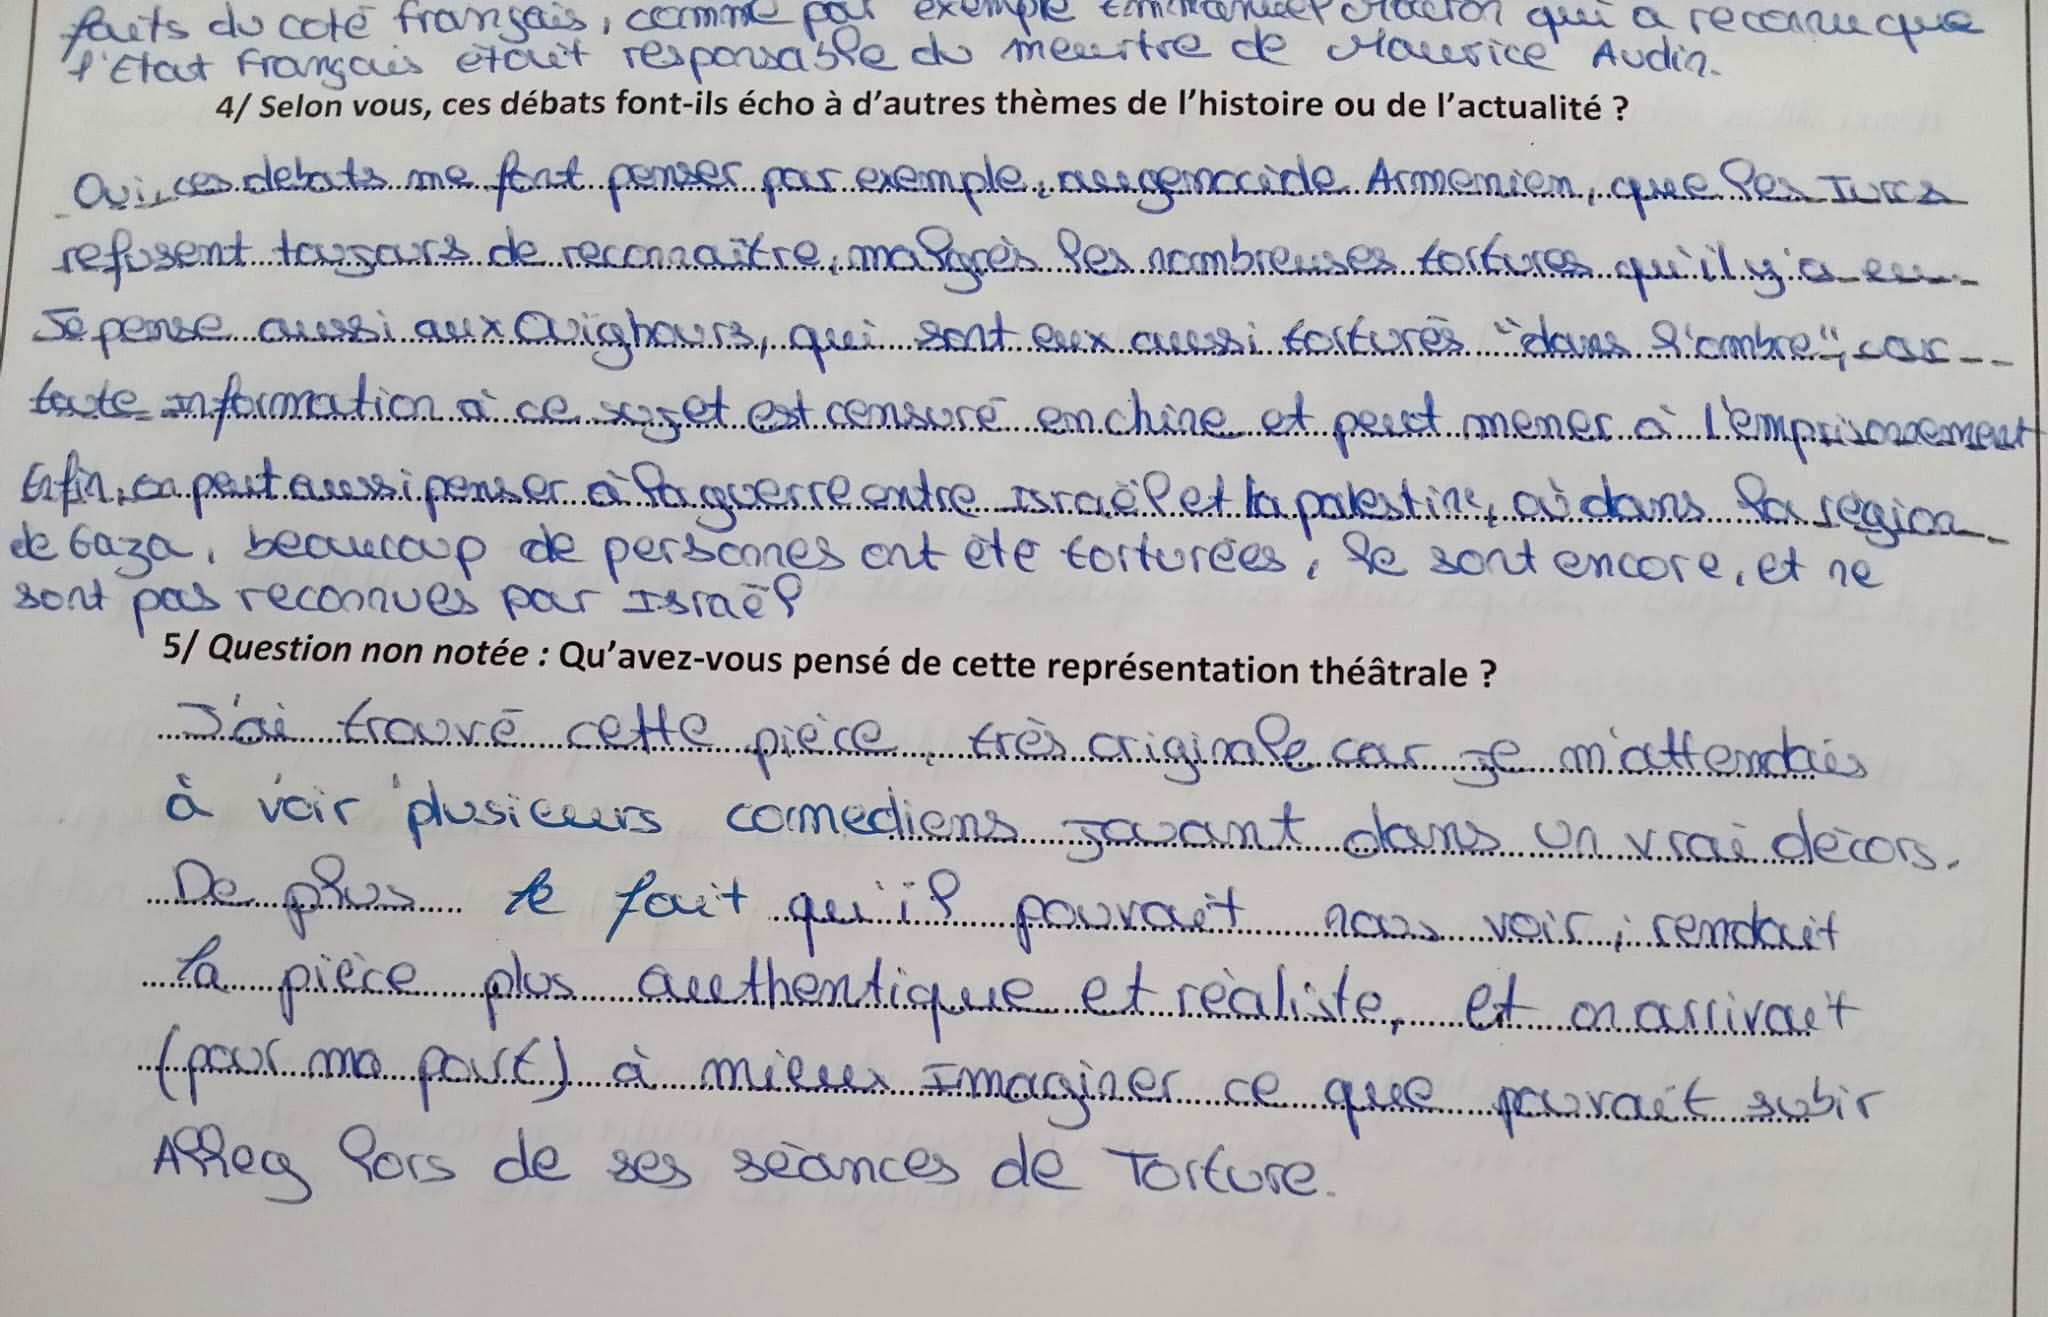 faits du coté français, comme par exemple Emmanuel Macron qui a reconnu que
l'Etat Français était responsable du meurtre de Maurice Audin.
4/ Selon vous, ces débats font-ils écho à d'autres thèmes de l'histoire ou de l'actualité ?
Oui, ces debats me font penser par exemple, au genocide Armenien, que les Turcs
refusent toujours de reconnaître, malgrès les nombreuses tortures qu'il y'a eu
Je pense aussi aux Ouïghours, qui sont eux aussi torturés "dans l'ombre", car
toute information à ce sujet est censuré en chine et peut mener à l'emprisonnement
Enfin, on peut aussi penser à la guerre entre Israël et la palestine, où dans la région
de Gaza, beaucoup de personnes ont été torturées, le sont encore, et ne
sont pas reconnues par Israël
5/ Question non notée : Qu'avez-vous pensé de cette représentation théâtrale ?
J'ai trouvé cette pièce, très originale car je m'attendais
à voir plusieurs comediens jouant dans un vrai décors.
De plus le fait qu'il pouvait nous voir, rendait
la pièce plus authentique et réaliste, et on arrivait
(pour ma part) à mieux Imaginer ce que pouvait subir
Alleg lors de ses séances de Torture.